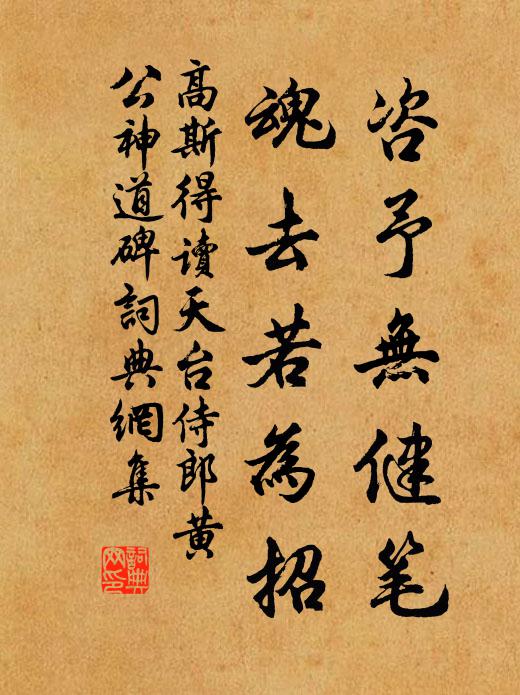 咨予無健笔
魂去若為招
高斯得讀天台侍郎黃
公神道碑詞典網集
詞典网印